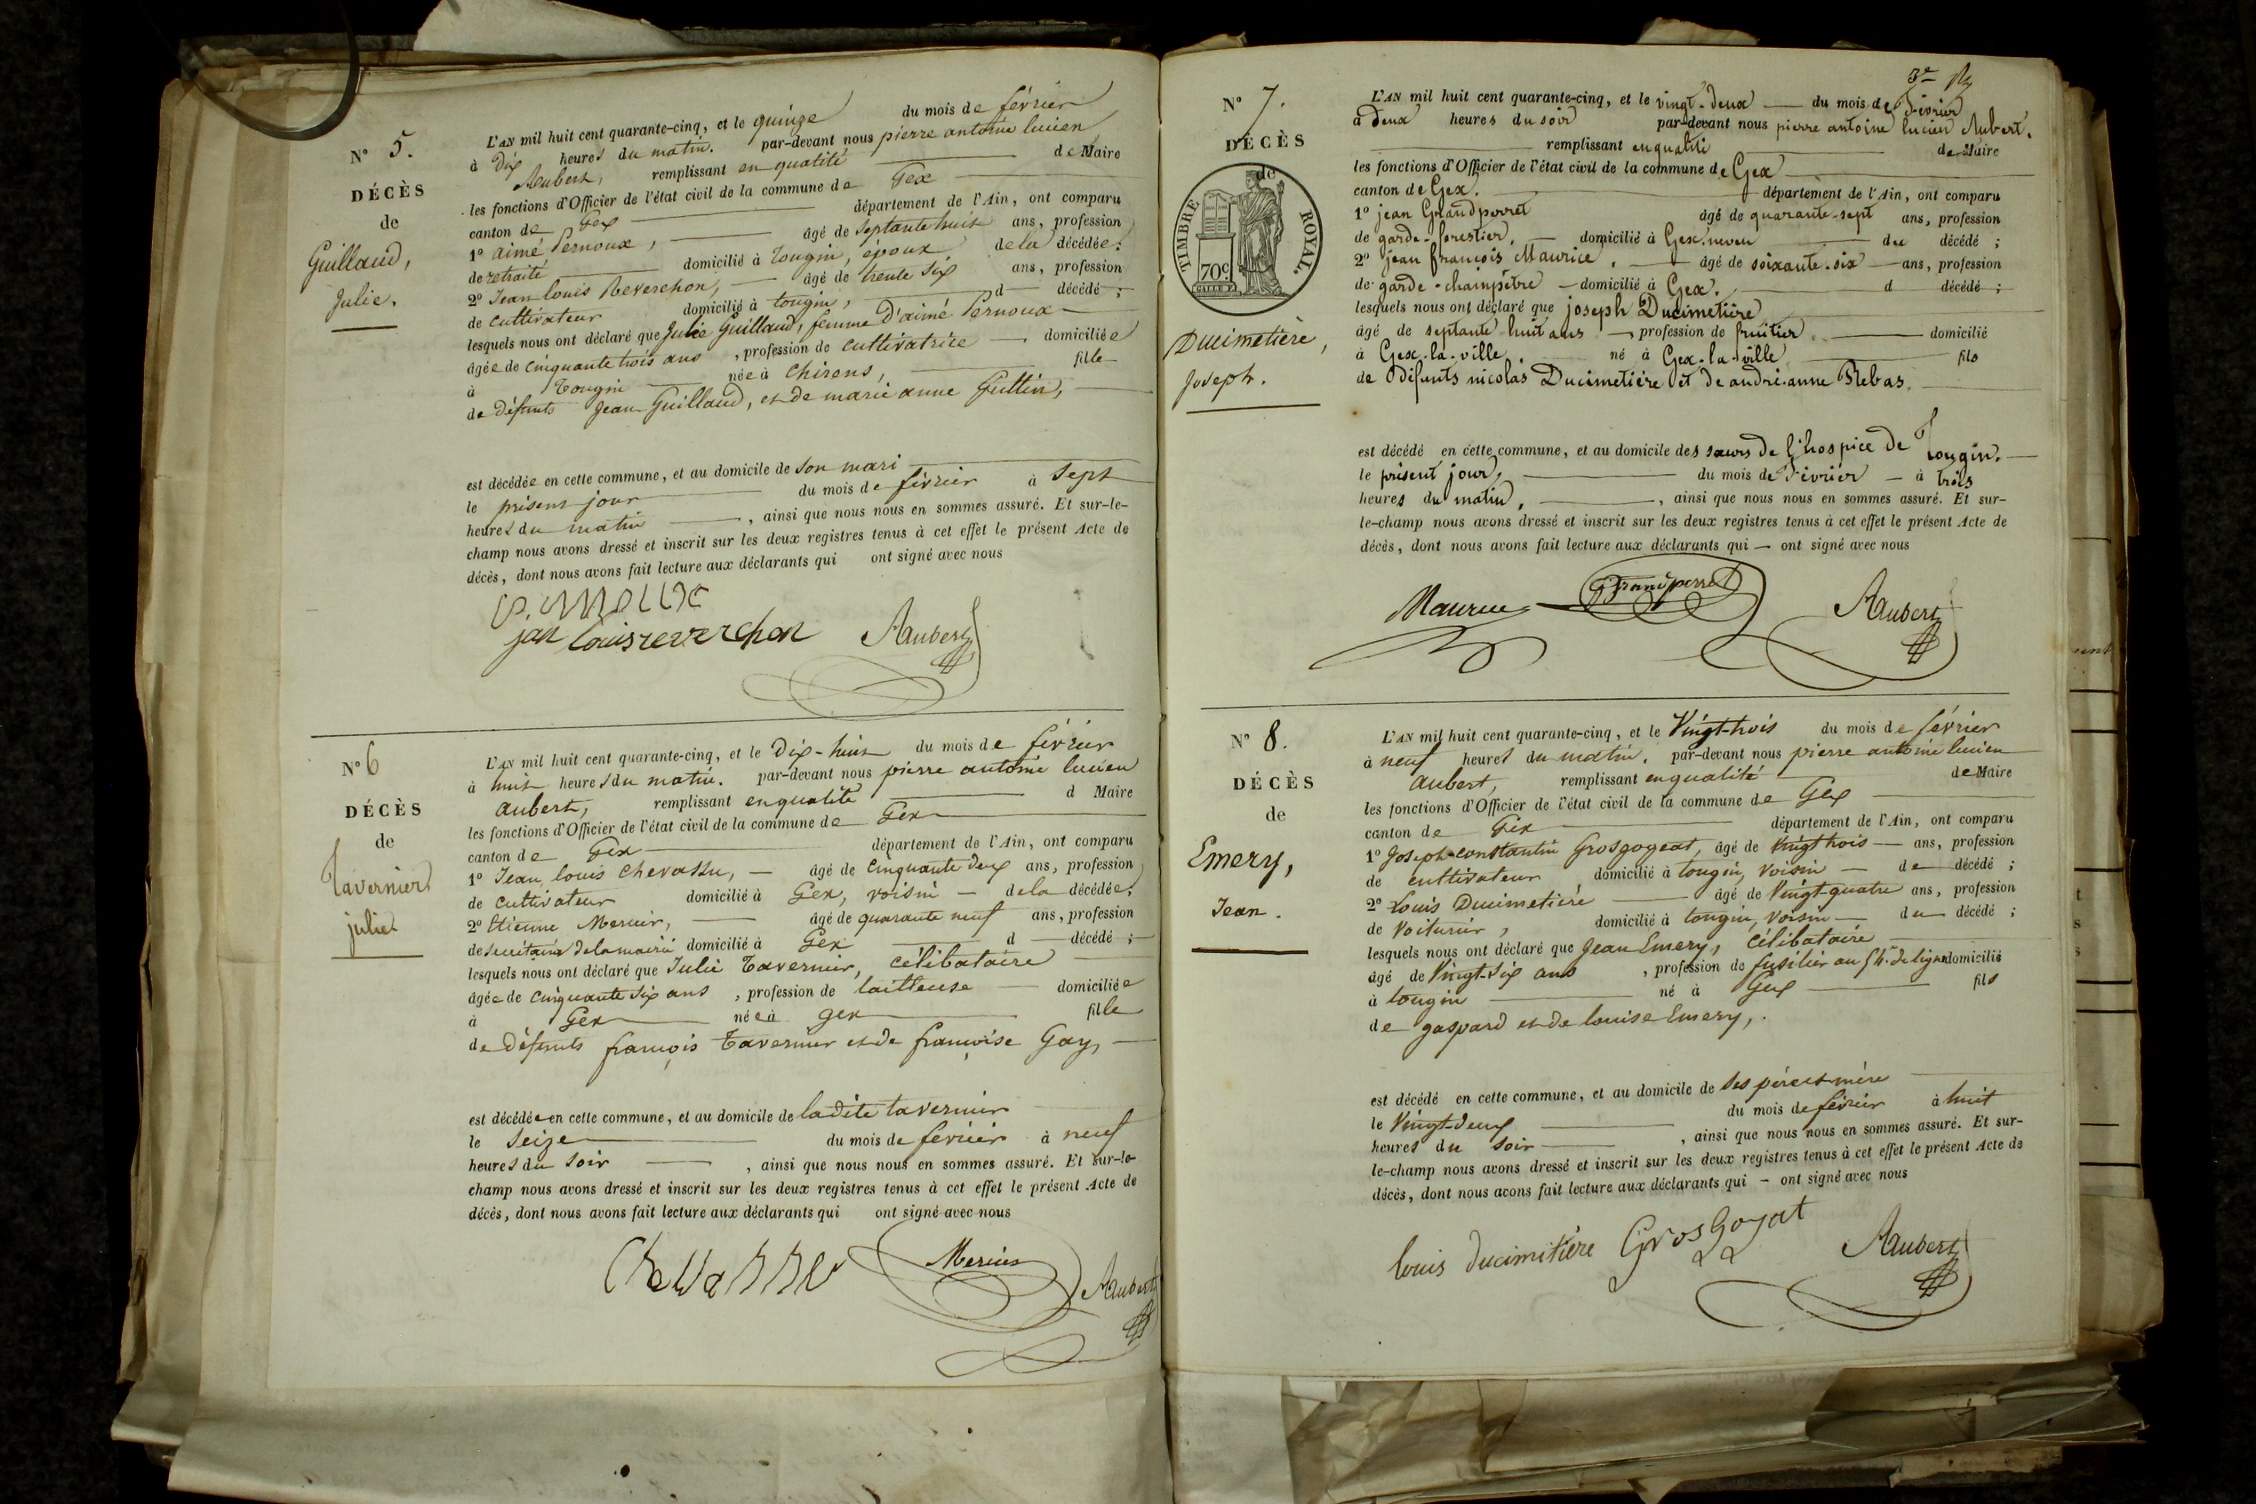 N° 5.
DÉCÈS
de
Guillaud,
Julie.
L'AN mil huit cent quarante-cinq, et le quinze du mois de février
à dix heures du matin. par-devant nous pierre antoine lucien
Aubert, remplissant en qualité de Maire
les fonctions d'Officier de l'état civil de la commune de Gex
canton de Gex département de l'Ain, ont comparu
1° aimé Pernoux, âgé de septante huit ans, profession
de retraité domicilié à tougin, époux de la décédée;
2° Jean louis Reverchon, âgé de trente six ans, profession
de cultivateur domicilié à tougin, d décédé;
lesquels nous ont déclaré que Julie Guillaud, femme D'aimé Pernoux
âgée de cinquante trois ans, profession de cultivatrice domiciliée
à Tougin née à chirens, fille
de défunts Jean Guillaud, et de marie anne Guttin,
est décédée en cette commune, et au domicile de son mari
le présent jour du mois de février à sept
heures du matin, ainsi que nous nous en sommes assuré. Et sur-le-
champ nous avons dressé et inscrit sur les deux registres tenus à cet effet le présent Acte de
décès, dont nous avons fait lecture aux déclarants qui ont signé avec nous
jan louis reverchon Aubert
N° 6
DÉCÈS
de
Tavernier
julie
L'AN mil huit cent quarante-cinq, et le dix-huit du mois de février
à huit heures du matin. par-devant nous pierre antoine lucien
aubert, remplissant en qualité d Maire
les fonctions d'Officier de l'état civil de la commune de Gex
canton de Gex département de l'Ain, ont comparu
1° Jean louis chevassu, âgé de cinquante deux ans, profession
de cultivateur domicilié à Gex, voisin de la décédée;
2° Etienne Mercier, âgé de quarante neuf ans, profession
de secrétaire de la mairie domicilié à Gex d décédé;
lesquels nous ont déclaré que Julie Tavernier, célibataire
âgée de cinquante six ans, profession de tailleuse domiciliée
à Gex née à gex fille
de défunts françois Tavernier et de françoise Gay,
est décédée en cette commune, et au domicile de ladite tavernier
le seize du mois de février à neuf
heures du soir, ainsi que nous nous en sommes assuré. Et sur-le-
champ nous avons dressé et inscrit sur les deux registres tenus à cet effet le présent Acte de
décès, dont nous avons fait lecture aux déclarants qui ont signé avec nous
Chevassu Mercier Aubert
3e
N° 7.
DÉCÈS
de
TIMBRE ROYAL.
70c
Ducimetière,
Joseph.
L'AN mil huit cent quarante-cinq, et le vingt-deux du mois de Février
à deux heures du soir par-devant nous pierre antoine lucien Aubert.
remplissant en qualité de Maire
les fonctions d'Officier de l'état civil de la commune de Gex
canton de Gex. département de l'Ain, ont comparu
1° jean Grandperret âgé de quarante-sept ans, profession
de garde-forestier, domicilié à Gex. neveu du décédé;
2° jean françois Maurice, âgé de soixante-six ans, profession
de garde-champêtre domicilié à Gex. d décédé;
lesquels nous ont déclaré que joseph Ducimetière
âgé de septante-huit ans, profession de fruitier. domicilié
à Gex-la-ville. né à Gex-la-ville fils
de défunts nicolas Ducimetière et de andré-anne Rebas.
est décédé en cette commune, et au domicile des sœurs de l'hospice de Tougin.
le présent jour, du mois de Février à trois
heures du matin, ainsi que nous nous en sommes assuré. Et sur-
le-champ nous avons dressé et inscrit sur les deux registres tenus à cet effet le présent Acte de
décès, dont nous avons fait lecture aux déclarants qui ont signé avec nous
Maurice Grandperret Aubert
N° 8.
DÉCÈS
de
Emery,
Jean.
L'AN mil huit cent quarante-cinq, et le Vingt-trois du mois de février
à neuf heures du matin. par-devant nous pierre antoine lucien
aubert, remplissant en qualité de Maire
les fonctions d'Officier de l'état civil de la commune de Gex
canton de Gex département de l'Ain, ont comparu
1° Joseph-constantin Grosgogeat, âgé de Vingt trois ans, profession
de cultivateur domicilié à tougin, voisin de décédé;
2° Louis Ducimetière âgé de Vingt-quatre ans, profession
de Voiturier, domicilié à tougin, Voisin du décédé;
lesquels nous ont déclaré que Jean Emery, célibataire
âgé de Vingt-six ans, profession de fusilier au 54e de ligne domicilié
à tougin né à Gex fils
de gaspard et de louise Emery,
est décédé en cette commune, et au domicile de ses père et mère
le Vingt-deux du mois de février à huit
heures du soir, ainsi que nous nous en sommes assuré. Et sur-
le-champ nous avons dressé et inscrit sur les deux registres tenus à cet effet le présent Acte de
décès, dont nous avons fait lecture aux déclarants qui ont signé avec nous
louis ducimitière Grosgogat Aubert